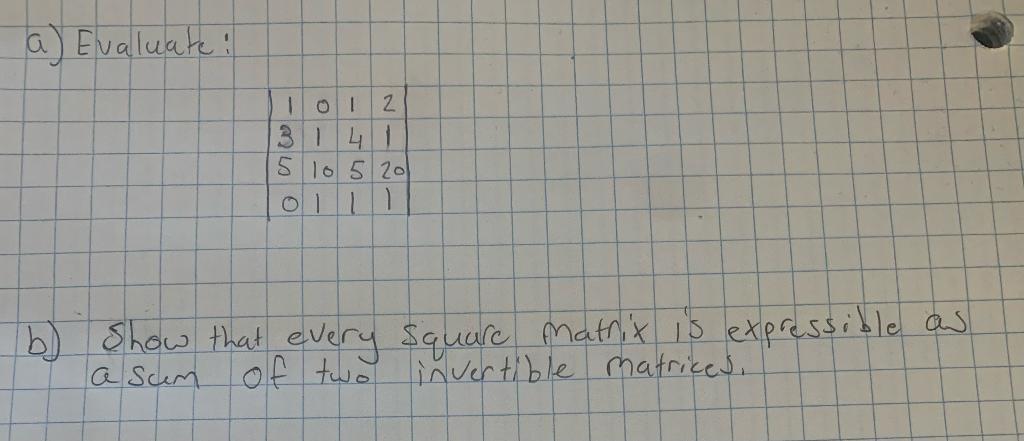 a) Evaluate:
| 1 0 1 2 |
| 3 1 4 1 |
| 5 10 5 20 |
| 0 1 1 1 |
b) Show that every square matrix is expressible as
a sum of two invertible matrices.